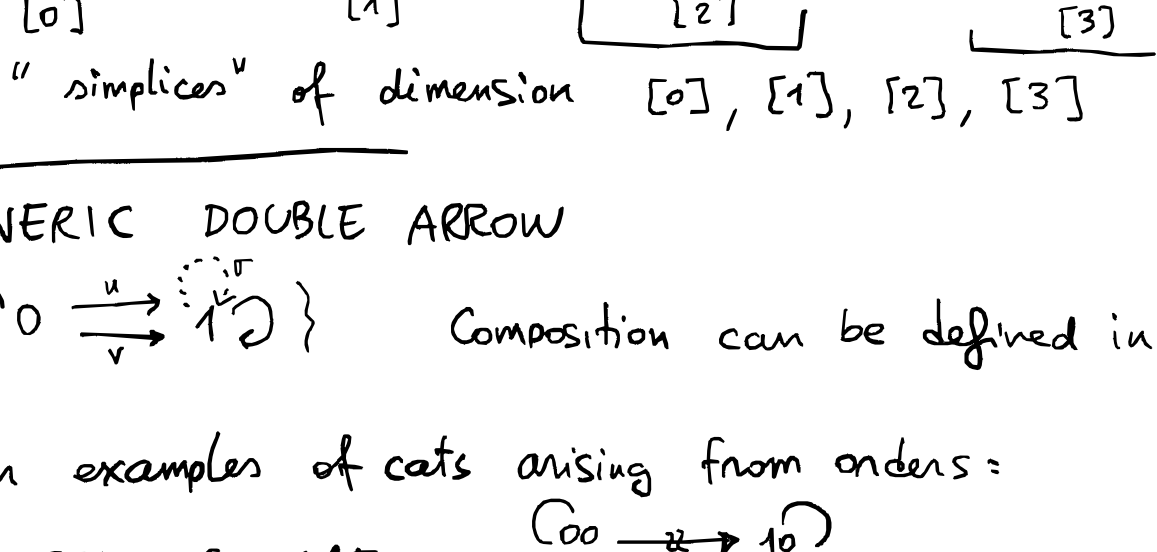 [0] [1] [2] [3]
" simplices " of dimension [0], [1], [2], [3]
NERIC DOUBLE ARROW
0 u v 1 σ } Composition can be defined in
examples of cats arising from orders:
00 10